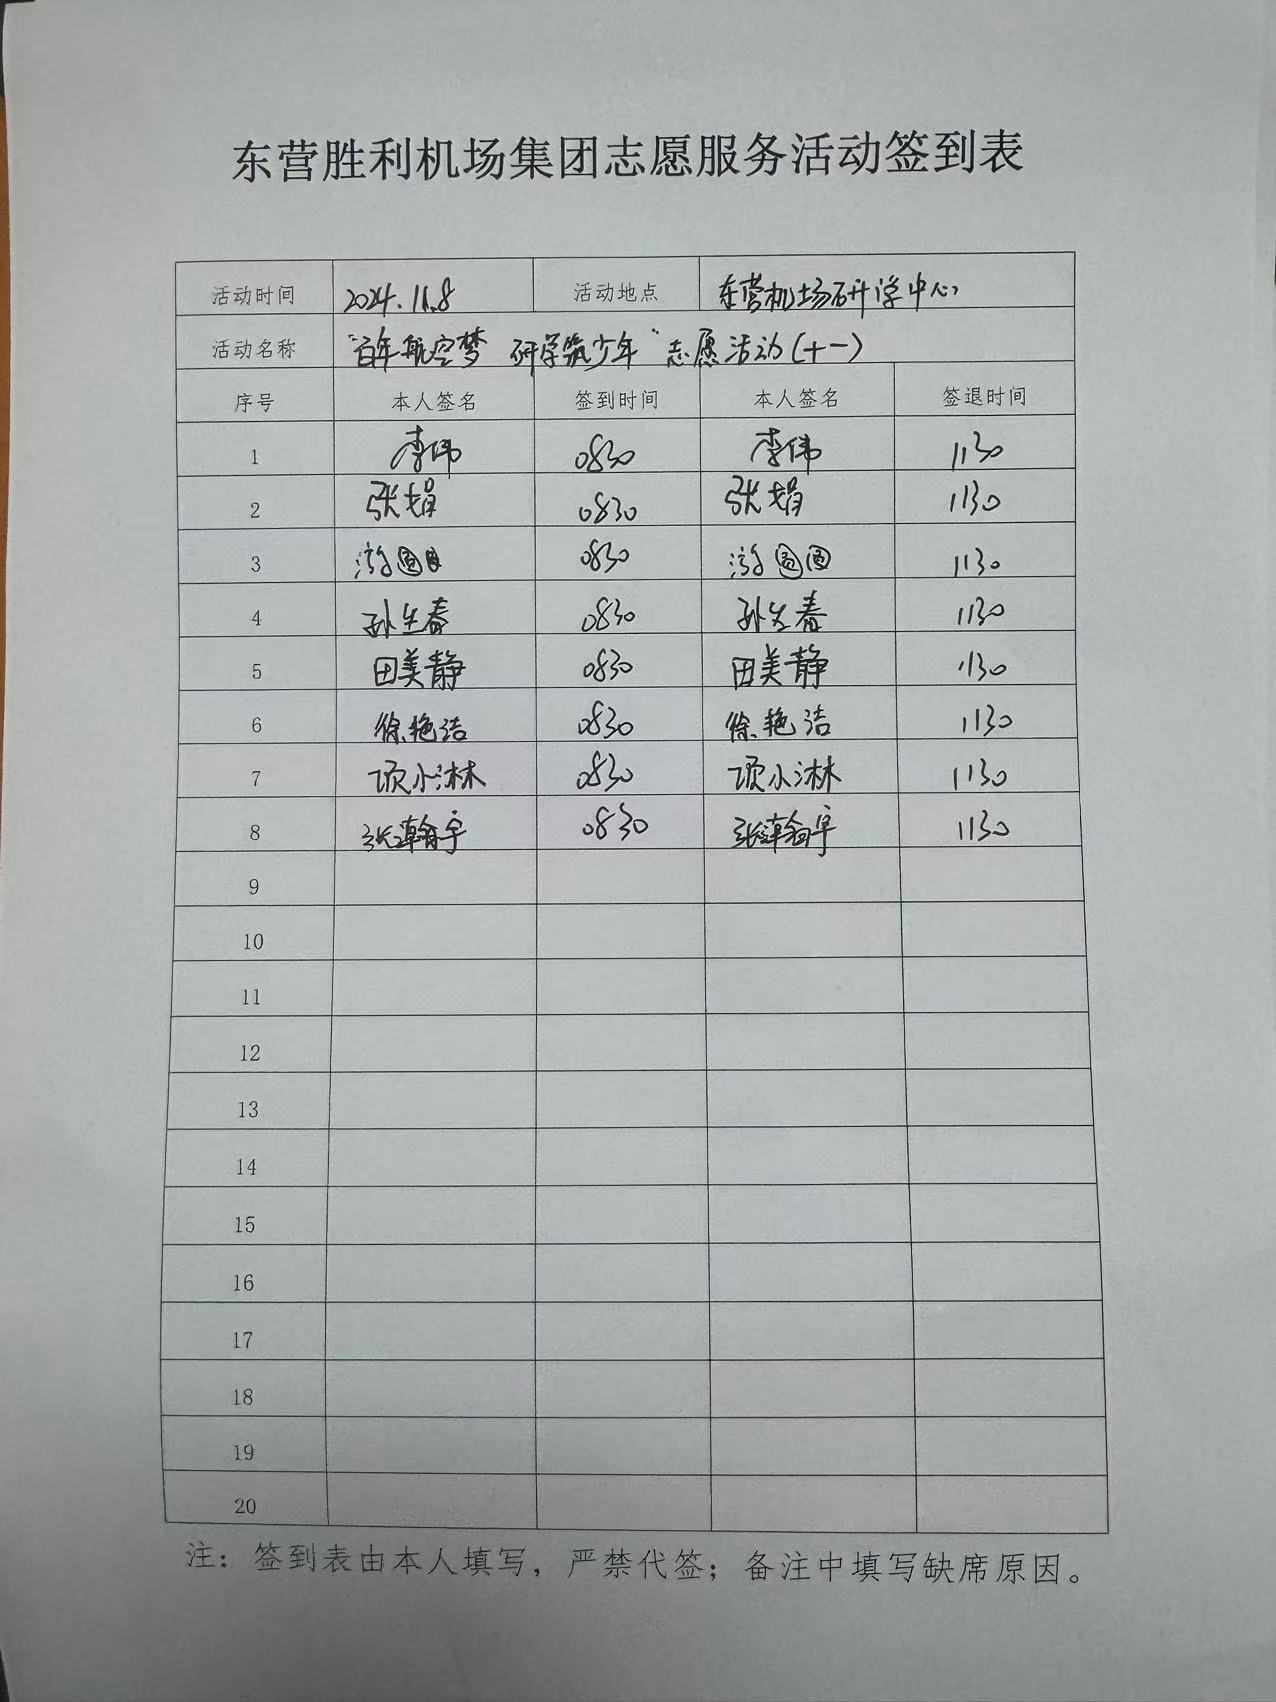 东营胜利机场集团志愿服务活动签到表
活动时间 2024.11.8 活动地点 东营机场研学中心
活动名称 “百年航空梦 研学筑少年”志愿活动(十一)
序号 本人签名 签到时间 本人签名 签退时间
1 李伟 0830 李伟 1130
2 张娟 0830 张娟 1130
3 游圆圆 0830 游圆圆 1130
4 孙生春 0830 孙生春 1130
5 田美静 0830 田美静 1130
6 徐艳洁 0830 徐艳洁 1130
7 项小淋 0830 项小淋 1130
8 张瀚宇 0830 张瀚宇 1130
9
10
11
12
13
14
15
16
17
18
19
20
注：签到表由本人填写，严禁代签；备注中填写缺席原因。